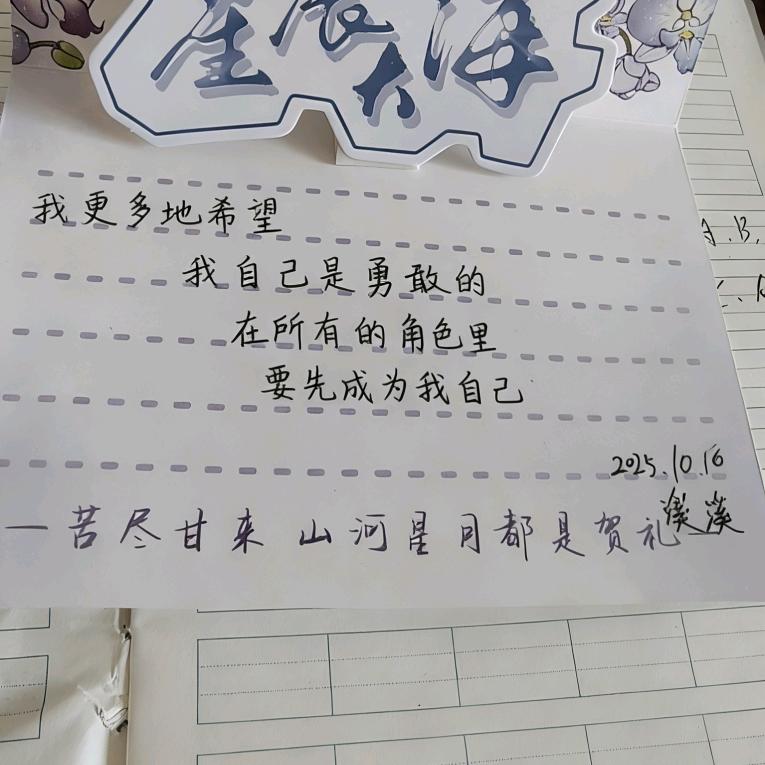 星辰大海
我更多地希望
我自己是勇敢的
在所有的角色里
要先成为我自己
2025.10.16
溪溪
—苦尽甘来 山河星月都是贺礼—
A.B.